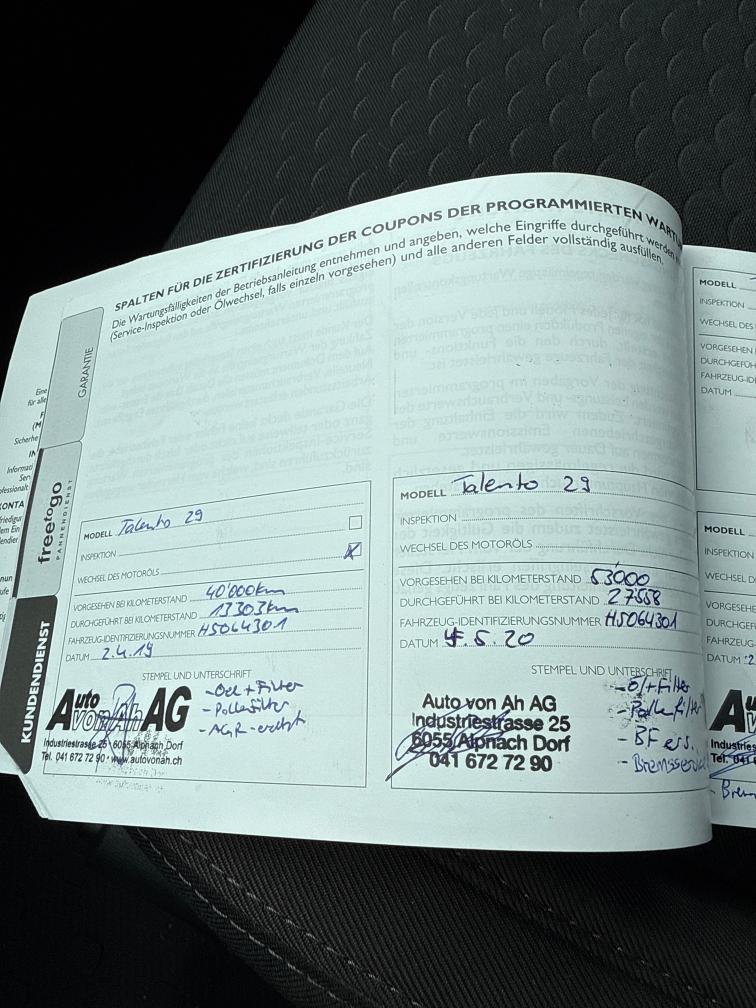 SPALTEN FÜR DIE ZERTIFIZIERUNG DER COUPONS DER PROGRAMMIERTEN
Die Wartungsfälligkeiten der Betriebsanleitung entnehmen und angeben, welche Eingriffe durchgeführt werden
(Service-Inspektion oder Ölwechsel, falls einzeln vorgesehen) und alle anderen Felder vollständig ausfüllen.
GARANTIE
freetogo
PANNENDIENST
KUNDENDIENST
MODELL Talento 29
INSPEKTION
WECHSEL DES MOTORÖLS
VORGESEHEN BEI KILOMETERSTAND 40'000km
DURCHGEFÜHRT BEI KILOMETERSTAND 13303km
FAHRZEUG-IDENTIFIZIERUNGSNUMMER H5064301
DATUM 2.4.19
STEMPEL UND UNTERSCHRIFT
Auto von Ah AG
Industriestrasse 25 6055 Alpnach Dorf
Tel. 041 672 72 90 • www.autovonah.ch
- Oel + Filter
- Pollenfilter
- AGR-ersetzt
MODELL Talento 29
INSPEKTION
WECHSEL DES MOTORÖLS
VORGESEHEN BEI KILOMETERSTAND 53000
DURCHGEFÜHRT BEI KILOMETERSTAND 27558
FAHRZEUG-IDENTIFIZIERUNGSNUMMER H5064301
DATUM 4.5.20
STEMPEL UND UNTERSCHRIFT
Auto von Ah AG
Industriestrasse 25
6055 Alpnach Dorf
041 672 72 90
- Öl+Filter
- Pollenfilter
- BF ers.
MODELL
INSPEKTION
WECHSEL DES
VORGESEHEN
DURCHGEFÜHRT
FAHRZEUG-IDE
DATUM
MODELL
INSPEKTION
WECHSEL D
VORGESEHE
DURCHGEFÜ
FAHRZEUG-
DATUM
Industries
Tel. 041